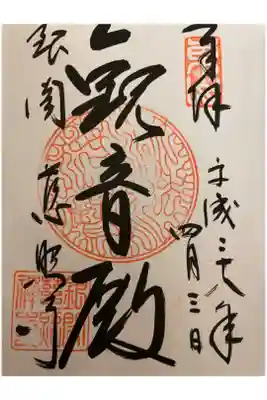 奉拝
平成二十八年
四月三日
観音殿
銀閣 慈照寺